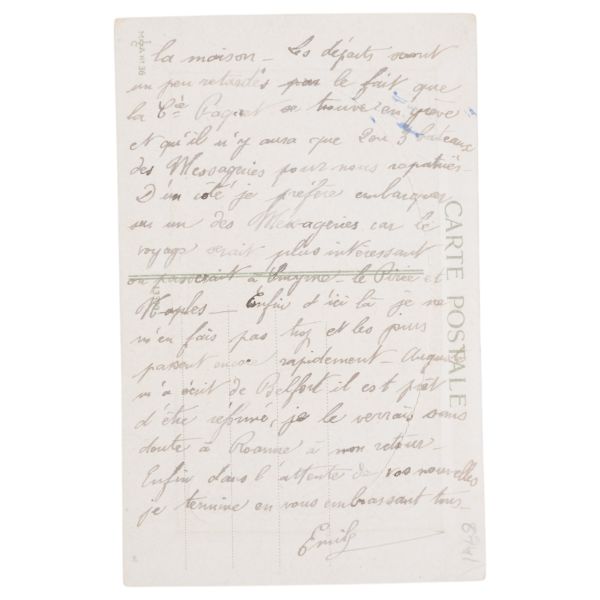 la maison - Les départs seront
un peu retardés par le fait que
la Cie Paquet se trouve en grève
et qu'il n'y aura que 2 ou 3 bateaux
des Messageries pour nous rapatriés -
D'un côté je préfère embarquer
sur un des Messageries car le
voyage serait plus intéressant
on passerait à Smyrne - le Pirée et
Naples - Enfin d'ici là je ne
m'en fais pas trop et les jours
passent encore rapidement - Auguste
m'a écrit de Belfort il est prêt
d'être réformé, je le verrais sans
doute à Roanne à mon retour -
Enfin dans l'attente de vos nouvelles
je termine en vous embrassant tous -
Emile
CARTE POSTALE
8941